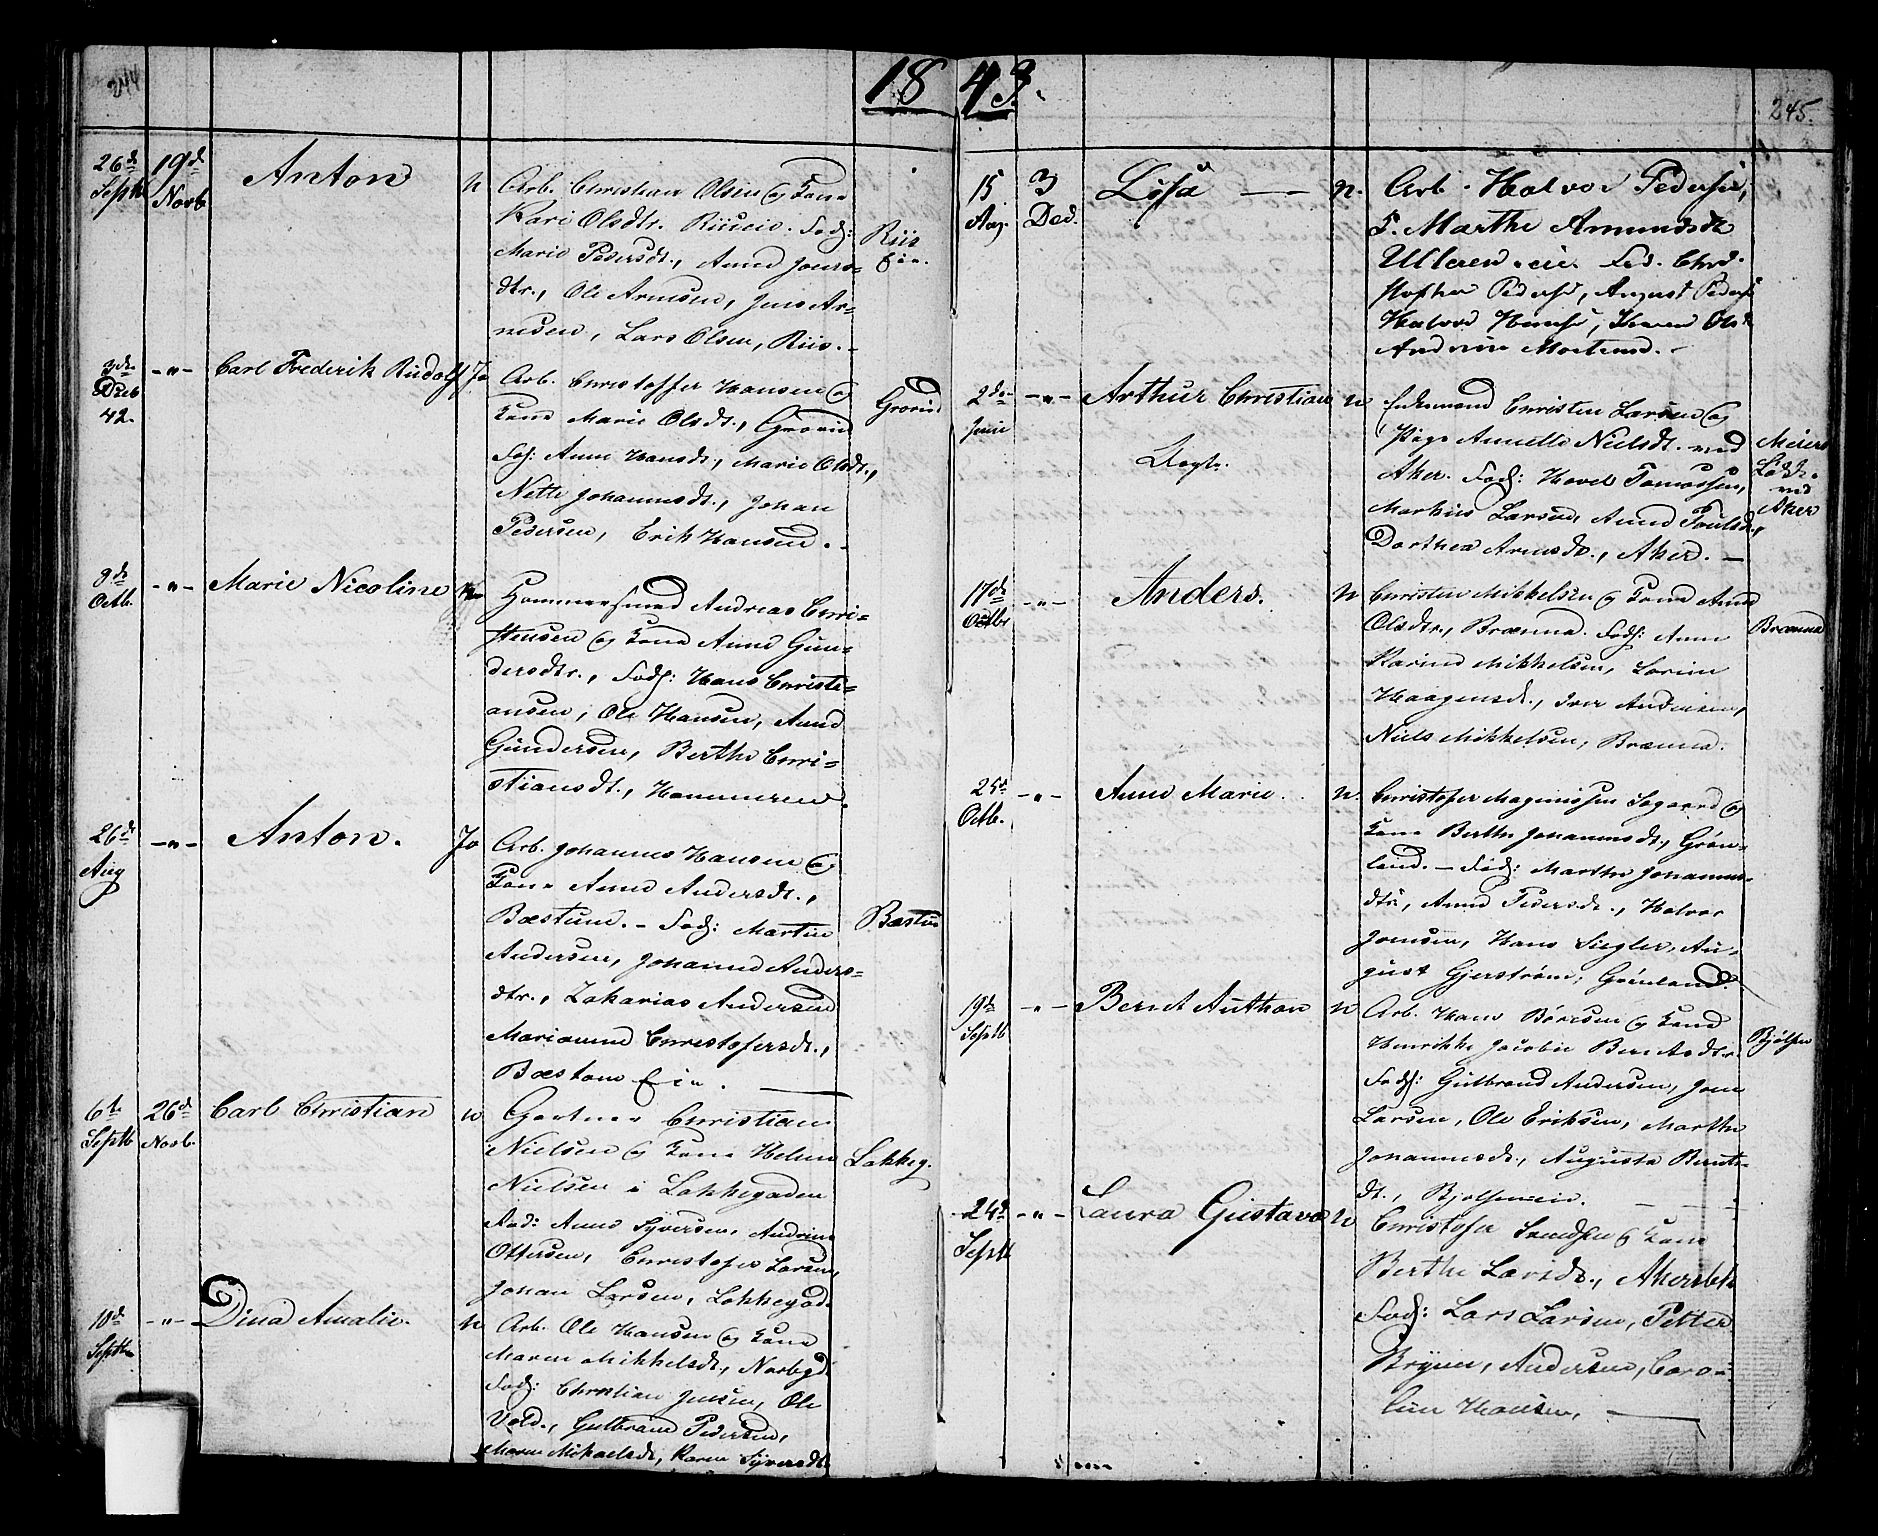 244
18 43.
245.
26d 19d Anton n Arb. Christian Olsen og Kone
Septb Novb Kari Olsdtr. Riiseie. Fad:
Marie Pedersdt., Anne Jons=
dtr., Ole Arnesen, Jens Ar=
nesen, Lars Olsen, Riis.
Riis
Eie.
3de Decb 42. -"- Carl Frederik Rudolf Ja Arb. Christoffer Hansen og
Kone Marie Olsdt., Grorud
Fad: Anne Hansdt., Marie Olsdt.,
Nette Johannesdt., Johan
Pedersen, Erik Hansen.
Grorud
9de Octb. -"- Marie Nicoline
Hammersmed Andreas Chri=
stensen og Kone Anne Gun=
dersdtr., Fad: Hans Christi=
ansen, Ole Hansen, Anne
Gundersen, Berthe Chri=
stiansdt., Hammeren.
26d Aug -"- Anton. Ja Arb. Johannes Hansen og
Kone Anne Andersdt.,
Bæstum. - Fad: Martin
Andersen, Johanne Anders=
dtr., Zakarias Andersen
Marianne Christofersdt.,
Bæstum Eie.
Bæstum
6te Septb 26d Novb. Carl Christian n Gartner Christian
Nielsen og Kone Helene
Nielsen i Lakkegaden
Fad: Anne Syversen, Andrine
Ottersen, Christofer Larsen,
Johan Larsen, Lakkegad.
Lakkeg.
10d Septb -"- Dina Amalie. n Arb. Ole Hansen og Kone
Maren Mikkelsdt., Norbygd.
Fad: Christian Jensen, Ole
Vold., Gulbrand Pedersen,
Maren Mikaelsdt, Karen Syversdt.
15 Aug. 3 Dec. Lovisa n. Arb. Halvor Pedersen,
K. Marthe Amundsdt
Ulleren eie. Fad. Chri=
stoffer Pedersen, August Pedersen
Halvor Hansen, Karen Ols
Andrine Mortensd.
2de Juni -"- Arthur Christian n Enkemand Christen Larsen og
Uægte. Pige Annette Nielsdt. ved
Aker. Fad: Hovel Tomassen,
Markus Larsen, Anne Poulsdt.,
Dorthea Arnesdt., Aker.
Meiers
Løkke
ved
Aker
17de Octbr -"- Anders. n Christen Mikkelsen og Kone Anne
Olsdtr., Brænna. Fad: Anne
Karine Mikkelsen, Lorine
Haagensdt., Iver Andersen,
Niels Mikkelsen, Brænna.
Brænna
25d Octb. -"- Anne Marie. n. Christofer Magnussen Sogaard og
Kone Berthe Johannesdt., Grøn=
land. - Fad: Marthe Johannes=
dtr, Anne Pedersdt., Halvor
Jensen, Hans Siegler, Au=
gust Gjerstrøm, Grønland.
19d Septb -"- Bernt Anthon n Arb. Hans Børesen og Kone
Henrikke Jacobie Berntsdtr.
Fad: Gulbrand Andersen, Jon
Larsen, Ole Eriksen, Marthe
Johannesdt., Augusta Bernts=
dt., Bjølseneie.
Bjølsen
24d Septb -"- Laura Gustava n Christofer Svendsen og Kone
Berthe Larsdt., Akersbak
Fad: Lars Larsen, Petter
Bryun, Andersen, Caro=
line Hansen,